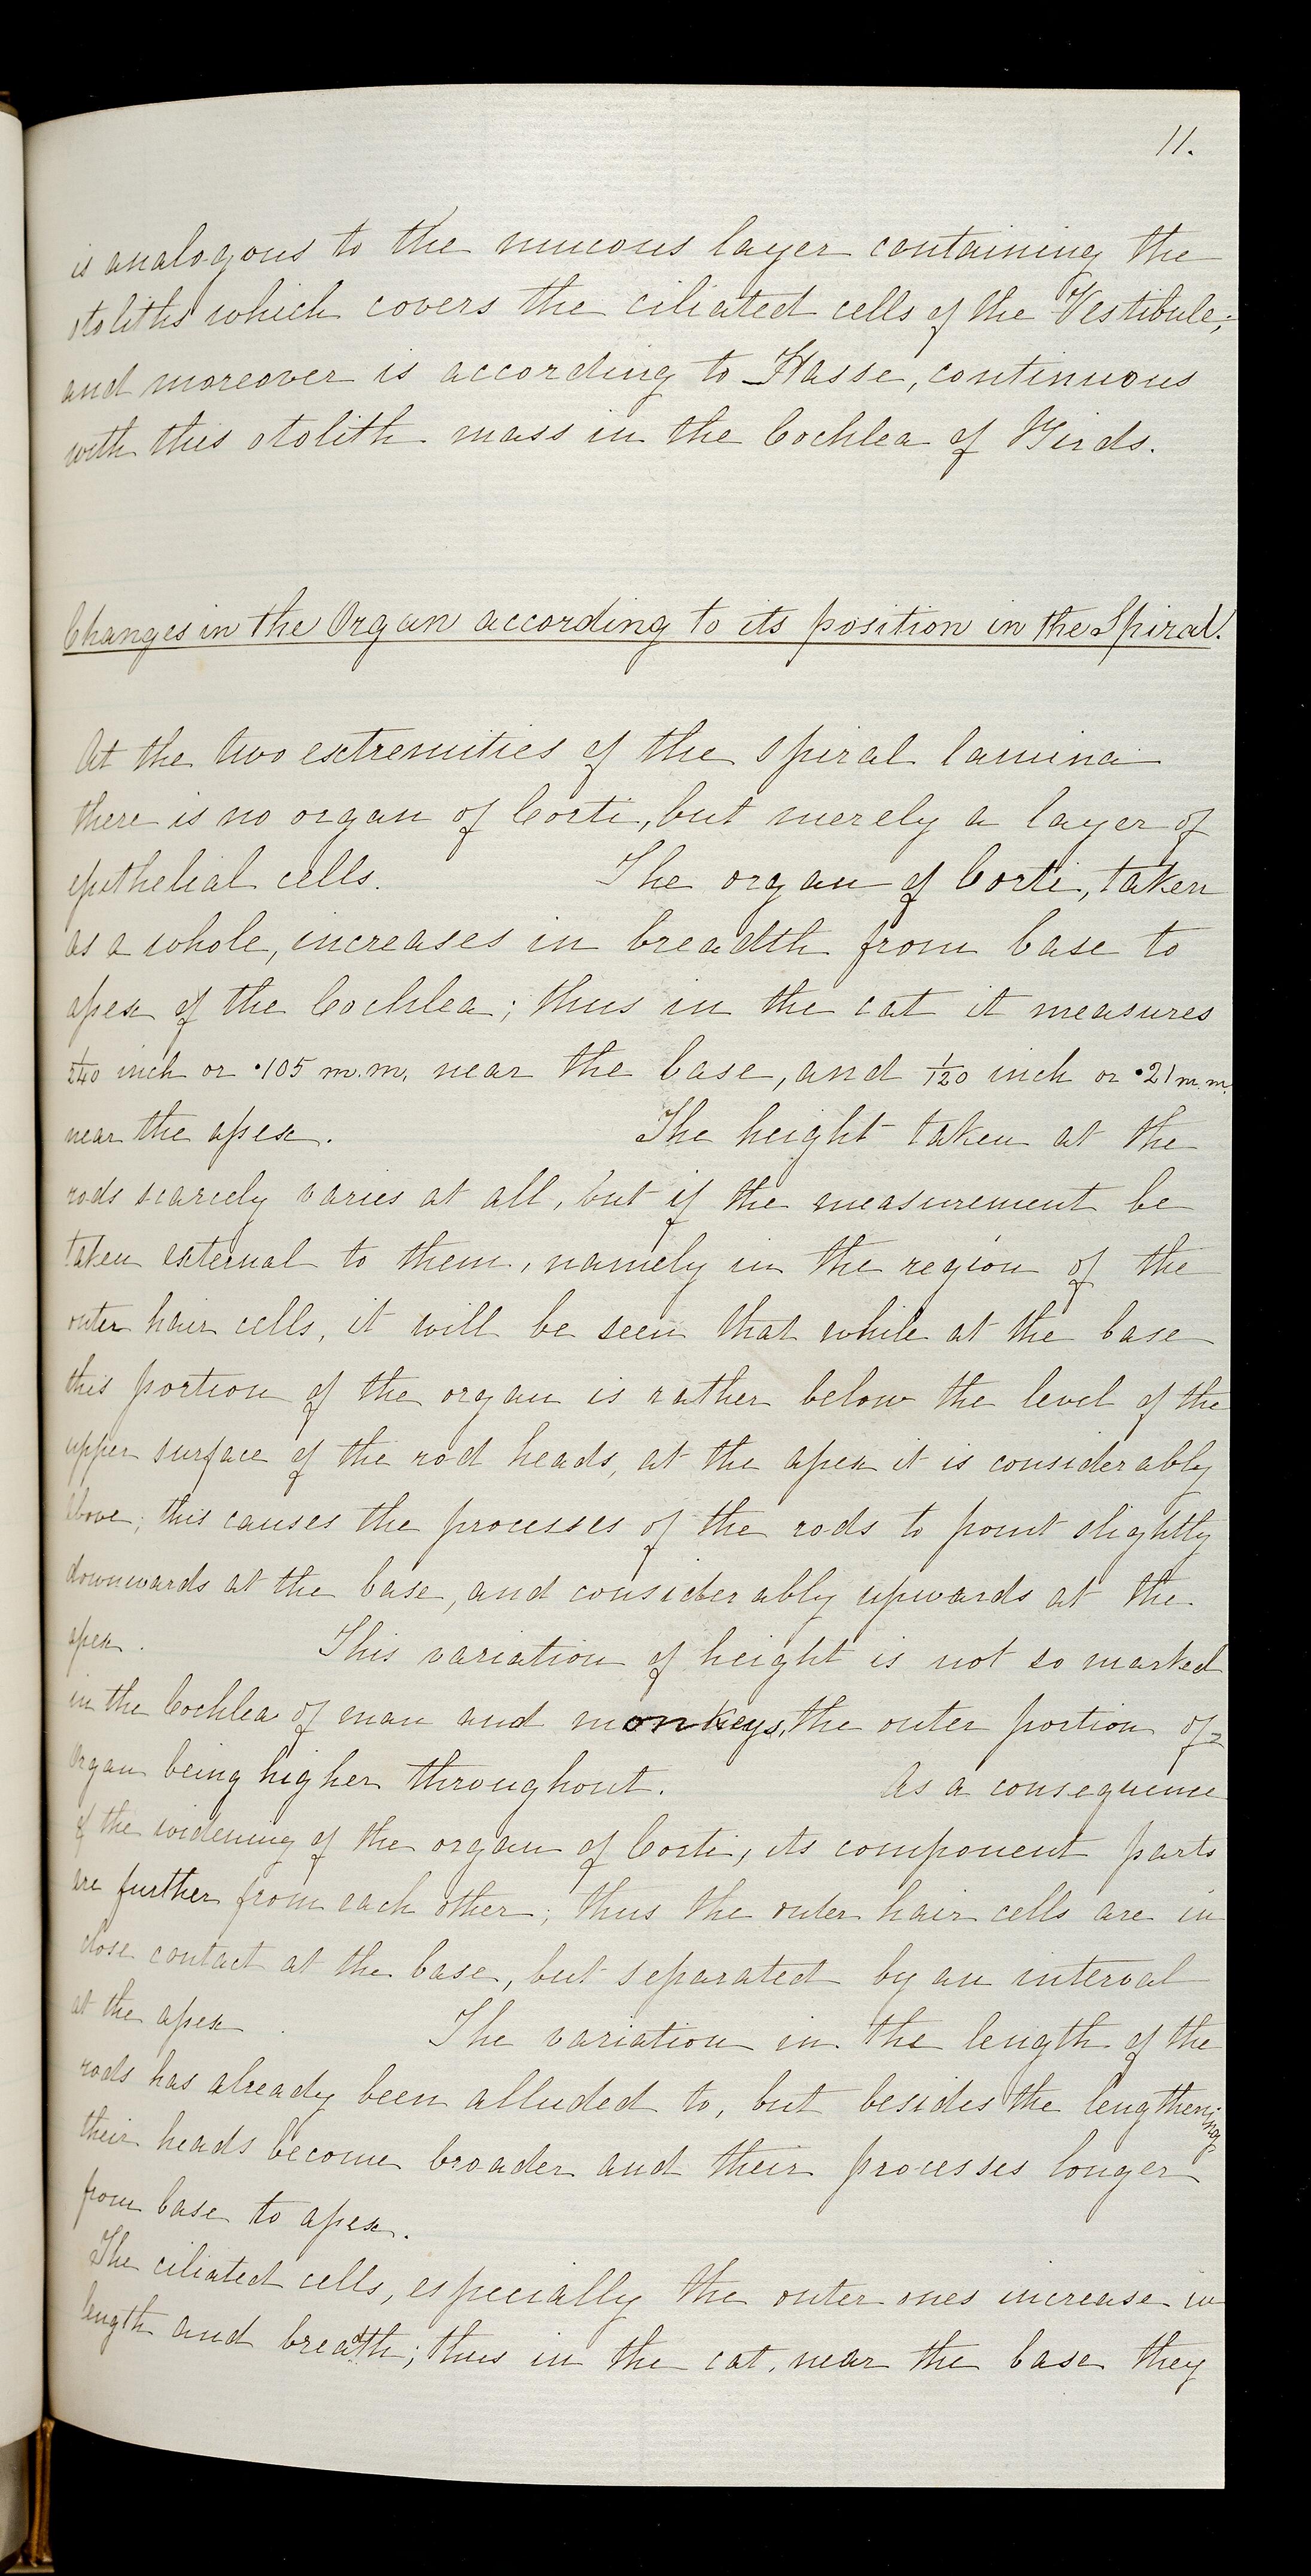 11.
is analogous to the mucous layer containing the
otoliths which covers the ciliated cells of the Vestibule;
and moreover is according to Hasse, continuous
with this otolith mass in the Cochlea of Birds.
Changes in the Organ according to its position in the Spiral.
At the two extremities of the spiral lamina
there is no organ of Corti, but merely a layer of
epithelial cells. The organ of Corti, taken
as a whole, increases in breadth from base to
apex of the Cochlea; thus in the cat it measures
1/240 inch or .105 m.m. near the base, and 1/120 inch or .21 m.m.
near the apex. The height taken at the
rods scarcely varies at all, but if the measurement be
taken external to them, namely in the region of the
outer hair cells, it will be seen that while at the base
this portion of the organ is rather below the level of the
upper surface of the rod heads, at the apex it is considerably
above; this causes the processes of the rods to point slightly
downwards at the base, and considerably upwards at the
apex. This variation of height is not so marked
in the Cochlea of man and monkeys, the outer portion of
Organ being higher throughout. As a consequence
of the widening of the organ of Corti, its component parts
are further from each other; thus the outer hair cells are in
close contact at the base, but separated by an interval
at the apex. The variation in the length of the
rods has already been alluded to, but besides the lengthening
their heads become broader and their processes longer
from base to apex.
The ciliated cells, especially the outer ones increase in
length and breadth; thus in the cat, near the base they